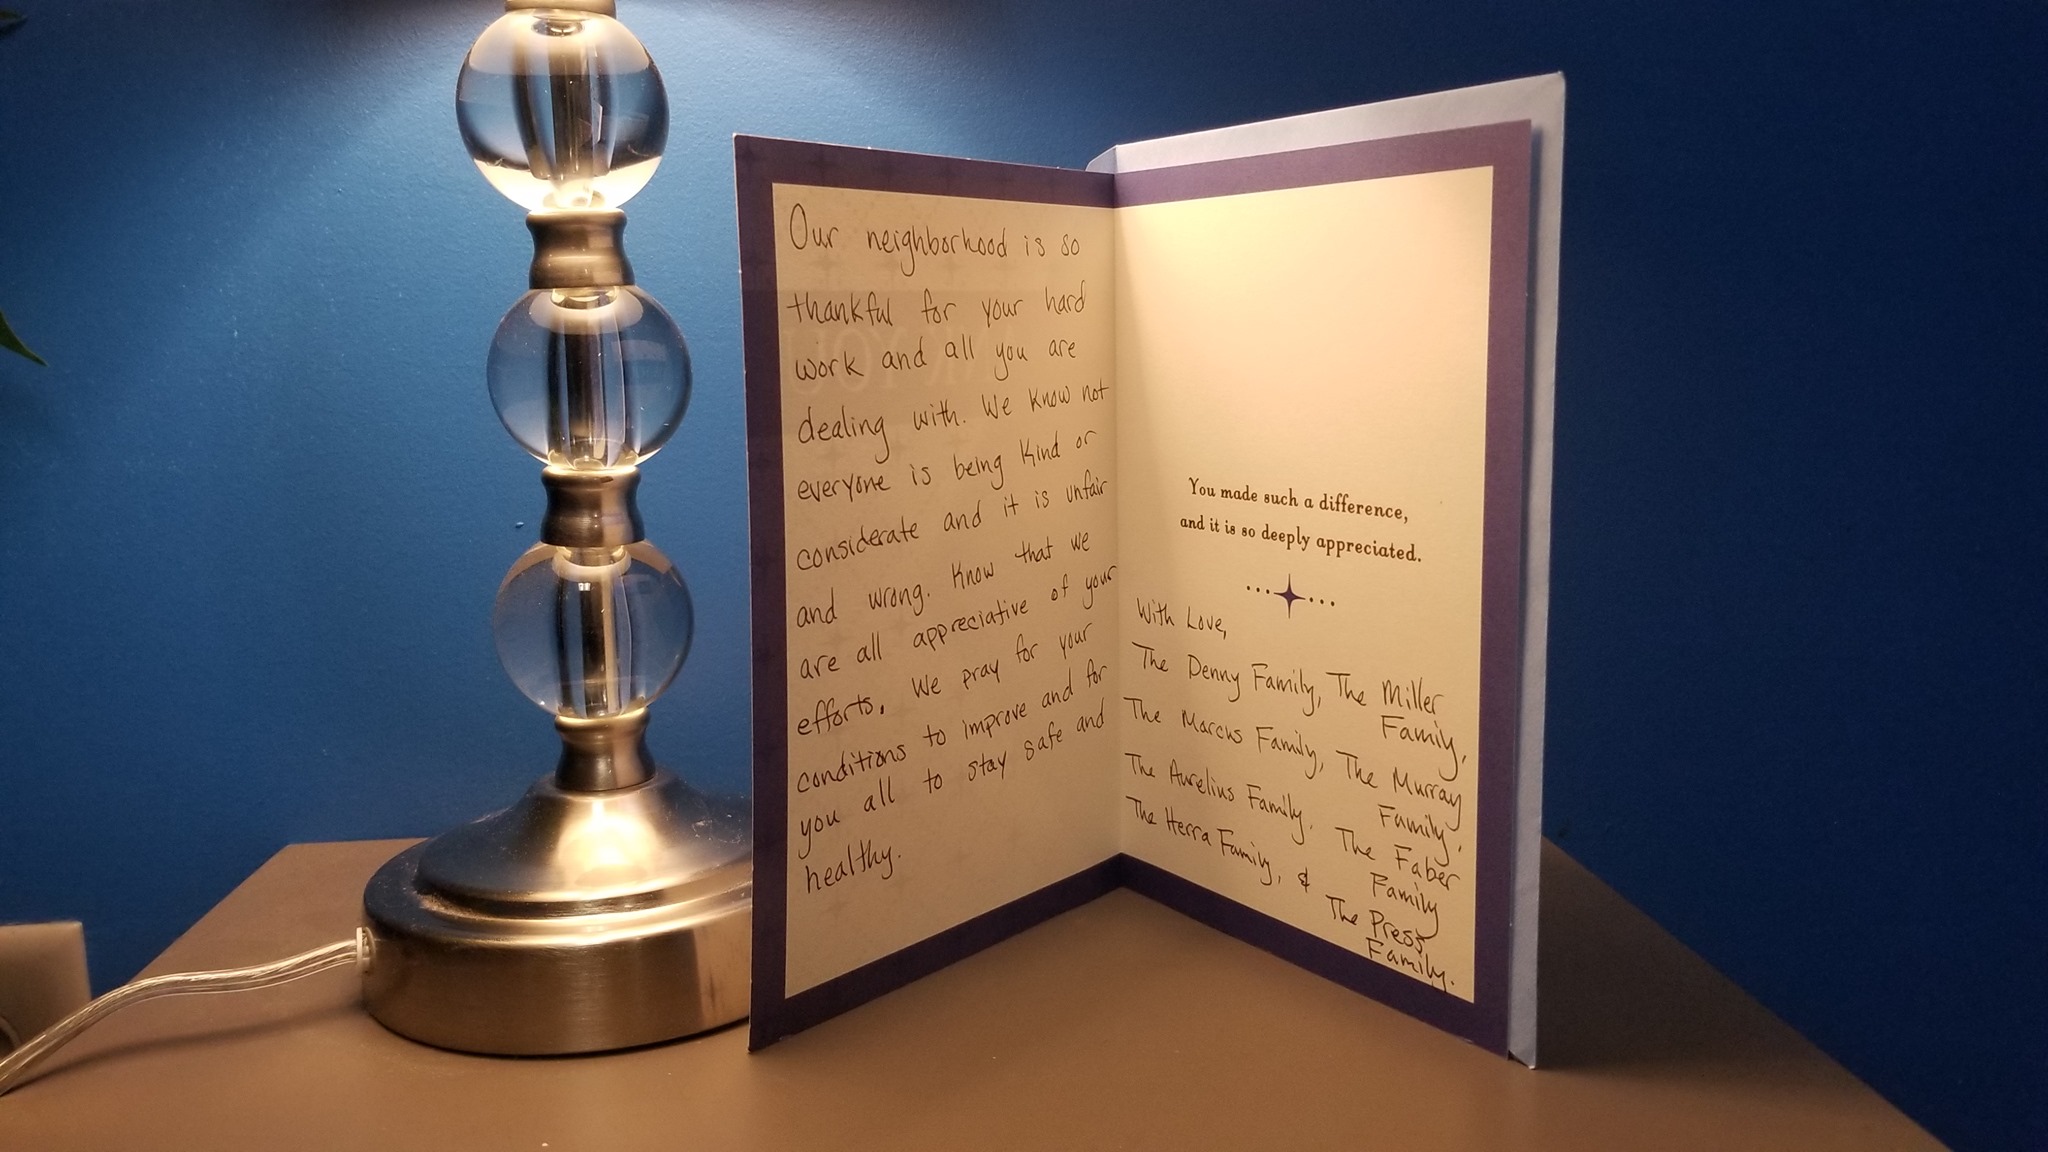 Our neighborhood is so
thankful for your hard
work and all you are
dealing with. We know not
everyone is being kind or
considerate and it is unfair
and wrong. Know that we
are all appreciative of your
efforts. We pray for your
conditions to improve and for
you all to stay safe and
healthy.
You made such a difference,
and it is so deeply appreciated.
With Love,
The Denny Family, The Miller
Family,
The Marcus Family, The Murray
Family,
The Aurelius Family, The Faber
Family
The Herra Family, &
The Press
Family.